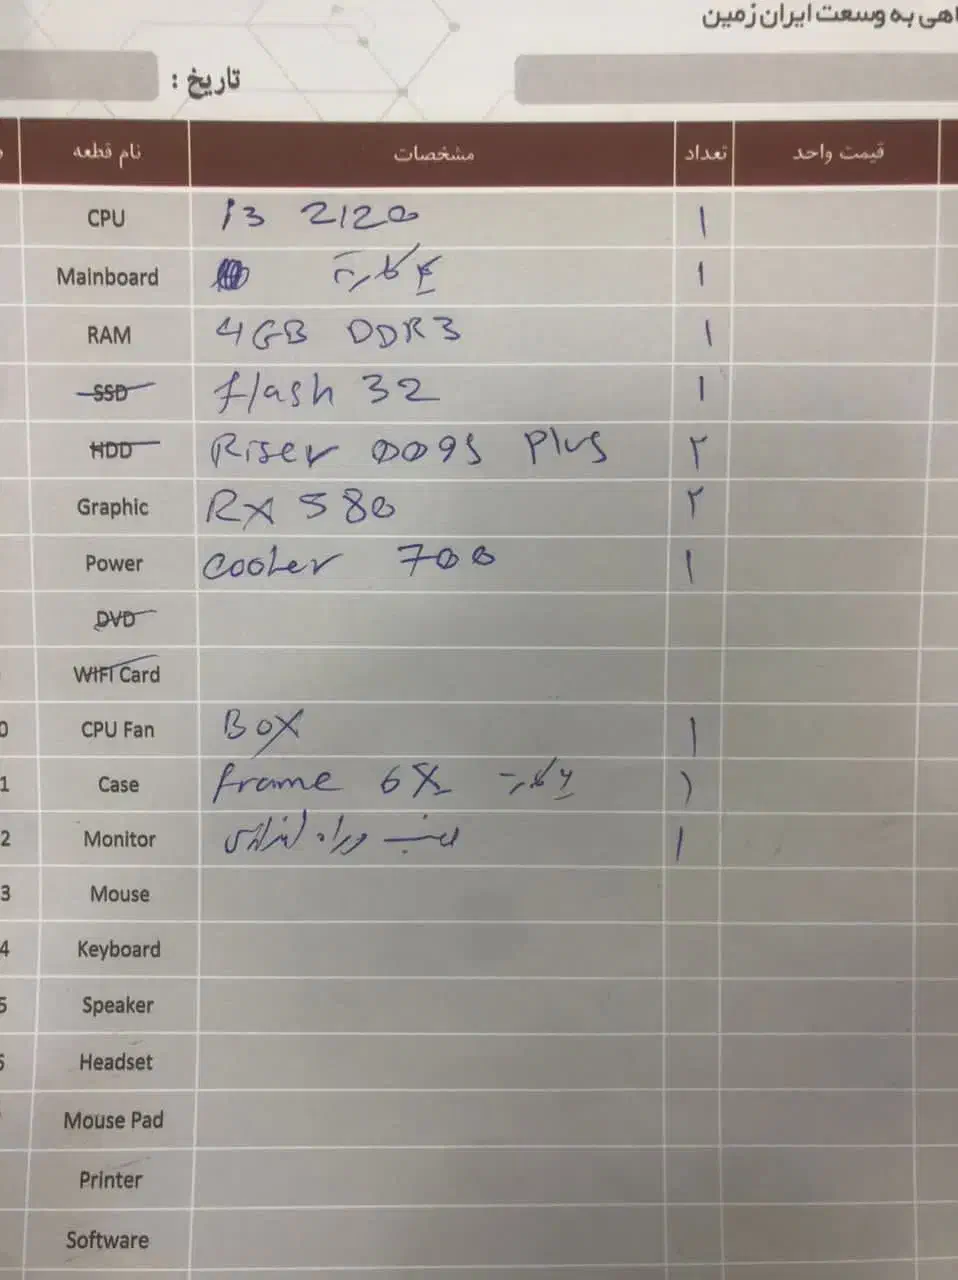 اهی به وسعت ایران زمین
تاریخ :
نام قطعه مشخصات تعداد قیمت واحد
CPU i3 2120 ۱
Mainboard ۴ کارت ۱
RAM 4GB DDR3 ۱
SSD flash 32 ۱
HDD Riser 009s plus ۲
Graphic Rx 580 ۲
Power cooler 700 ۱
DVD
WIFI Card
0 CPU Fan Box ۱
1 Case frame 6X کارت ۱
2 Monitor نصب و راه اندازی ۱
3 Mouse
4 Keyboard
5 Speaker
6 Headset
Mouse Pad
Printer
Software